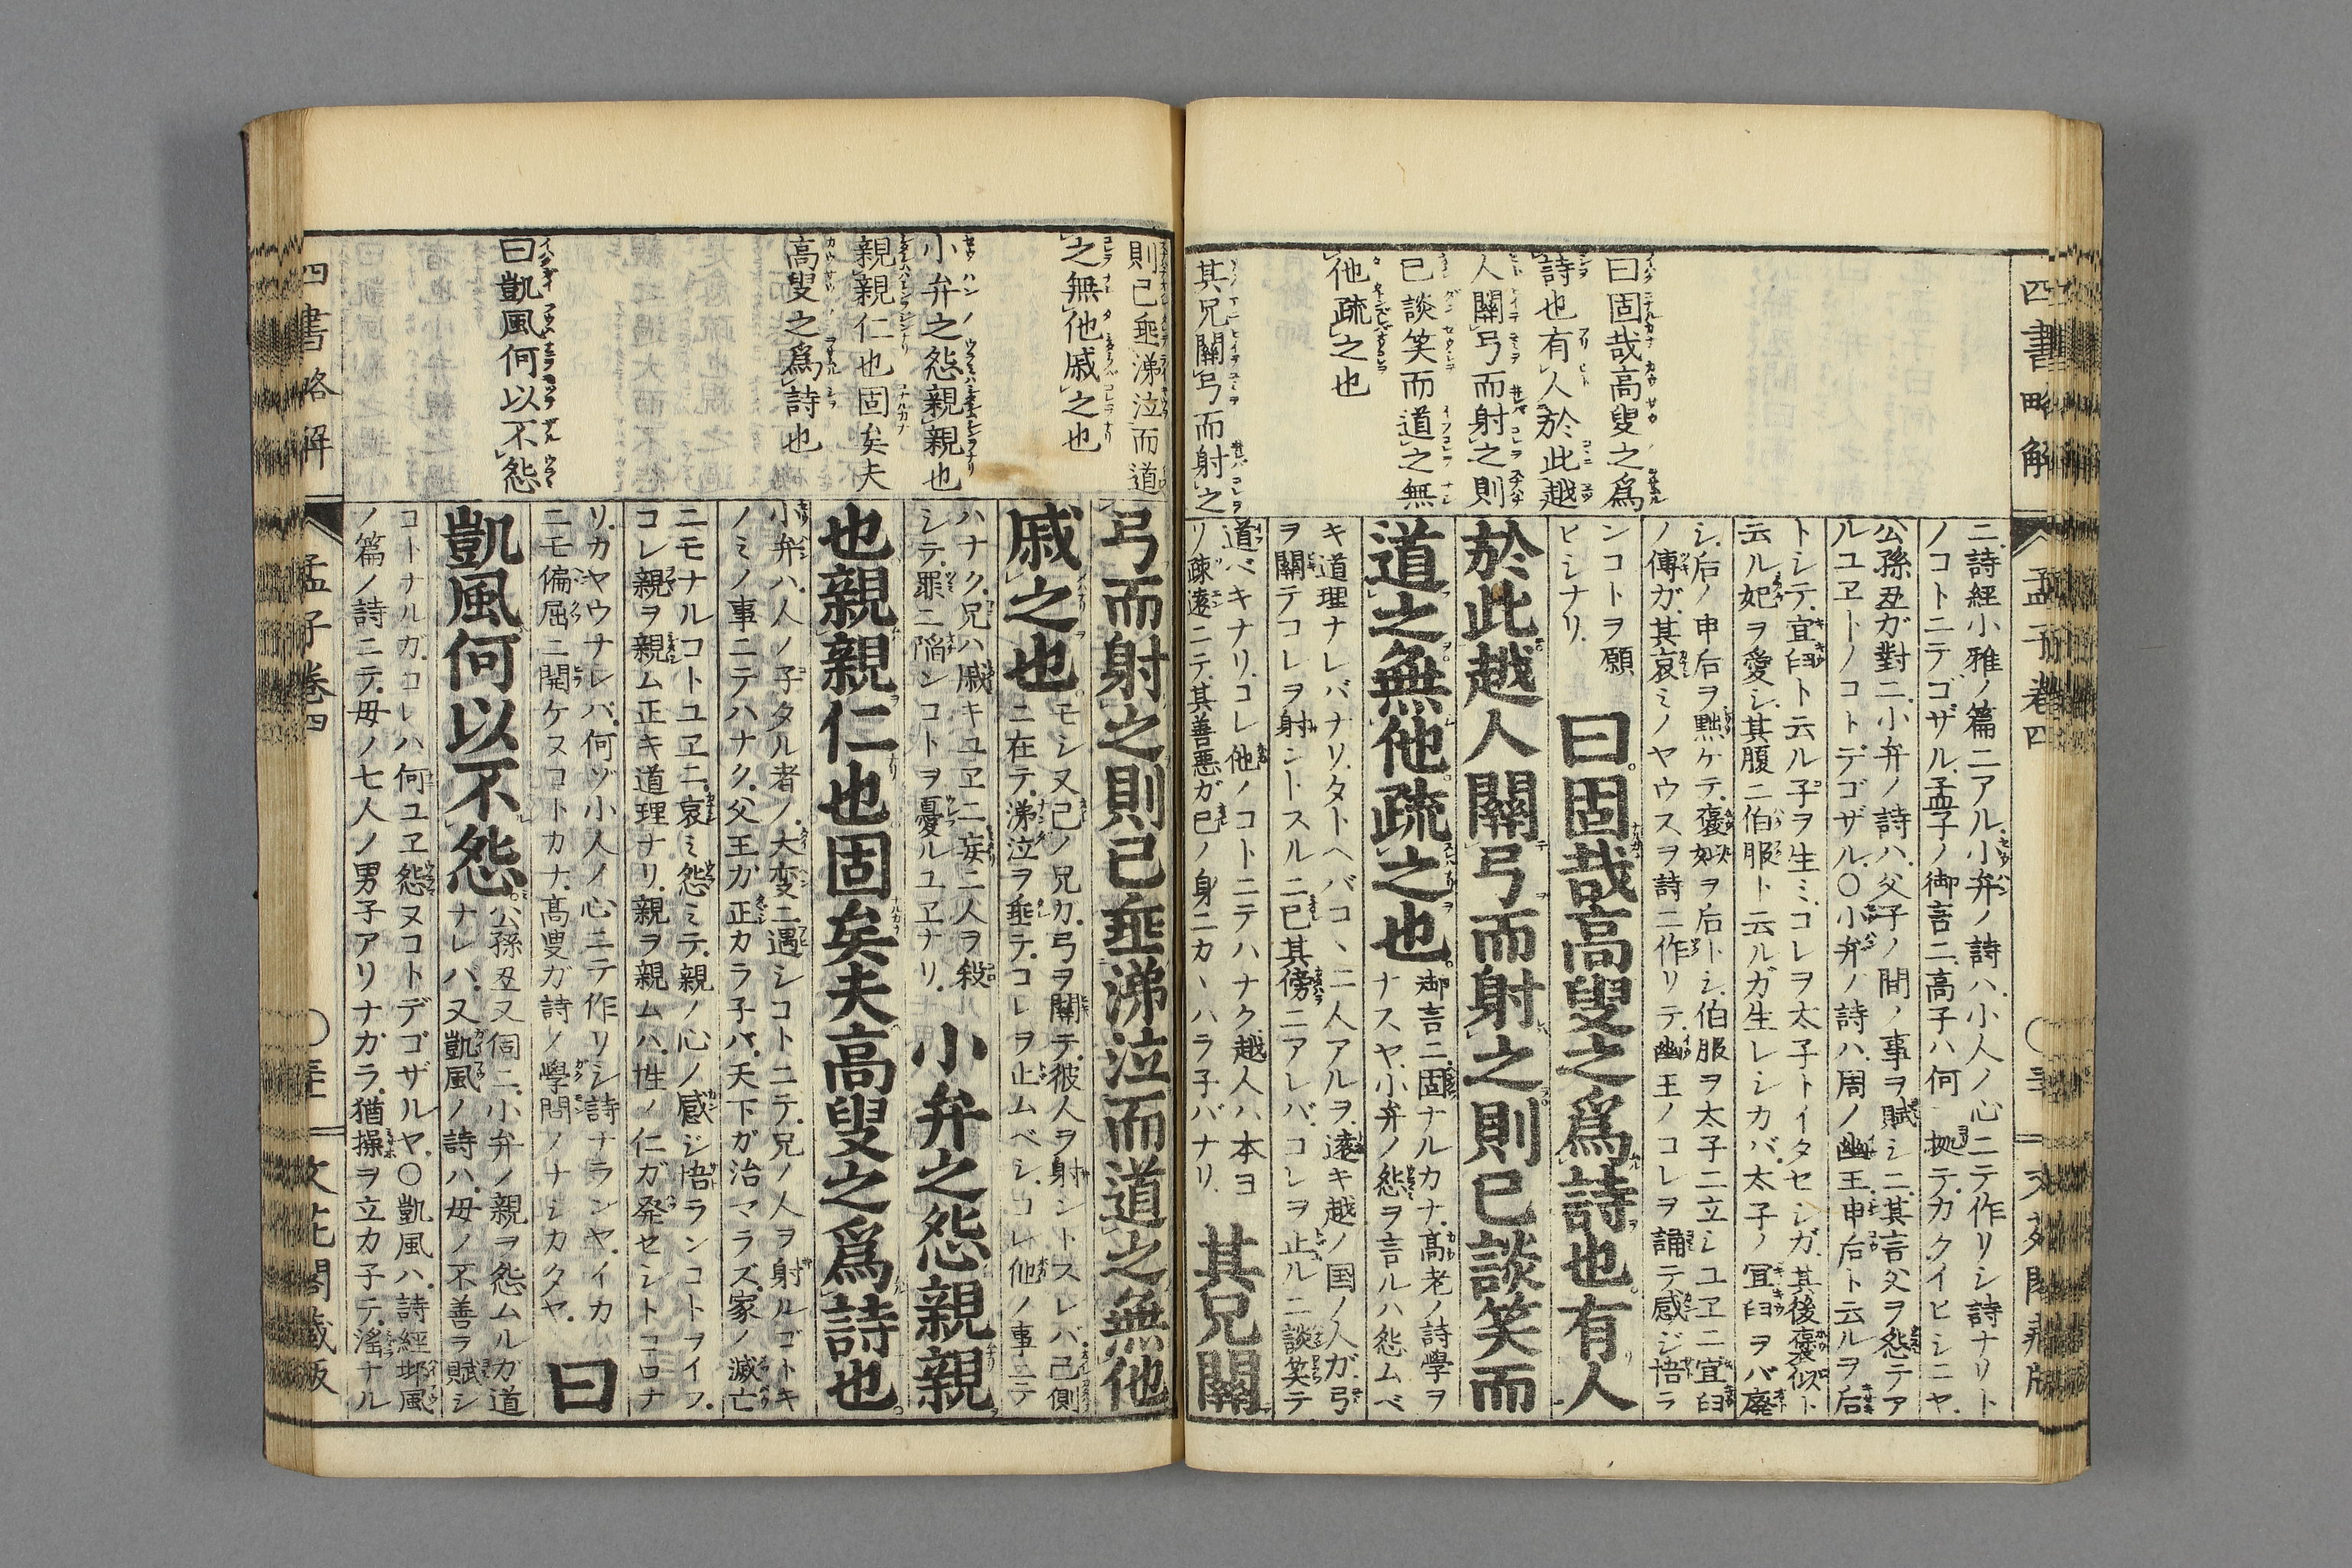 四書略解
孟子巻四
曰固哉高叟之爲
詩也有人於此越
人關弓而射之則
已談笑而道之無
他疏之也
其兄關弓而射之
ニ詩経小雅ノ篇ニアル小弁ノ詩ハ小人ノ心ニテ作リシ詩ナリト
ノコトニテゴザル孟子ノ御言ニ高子ハ何拠テカクイヒシニヤ
公孫丑ガ對ニ小弁ノ詩ハ父子ノ間ノ事ヲ賦シニ其言父ヲ怨テア
ルユヱトノコトデゴザル〇小弁ノ詩ハ周ノ幽王申后ト云ルヲ后
トシテ宜臼ト云ル子ヲ生ミコレヲ太子トイタセシガ其後褒姒ト
云ル妃ヲ愛シ其腹ニ伯服ト云ルガ生レシカバ太子ノ宜臼ヲバ廢
シ后ノ申后ヲ黜ケテ褒姒ヲ后トシ伯服ヲ太子ニ立シユヱニ宜臼
ノ傅ガ其哀ミノヤウスヲ詩ニ作リテ幽王ノコレヲ誦テ感ジ悟ラ
ンコトヲ願
ヒシナリ
曰固哉高叟之爲詩也有人
於此越人關弓而射之則已談笑而
道之無他疏之也
御言ニ固ナルカナ高老ノ詩學ヲ
ナスヤ小弁ノ怨ヲ言ルハ怨ムベ
キ道理ナレバナリタトヘバコヽニ人アルヲ遠キ越ノ国ノ人ガ弓
ヲ關テコレヲ射ントスルニ已其傍ニアレバコレヲ止ルニ談笑テ
道ベキナリコレ他ノコトニテハナク越人ハ本ヨ
リ疎遠ニテ其善悪ガ已ノ身ニカヽハラ子バナリ
其兄關
則已垂涕泣而道
之無他戚之也
小弁之怨親親也
親親仁也固矣夫
高叟之爲詩也
曰凱風何以不怨
弓而射之則已垂涕泣而道之無他
戚之也
モシ又已ノ兄ガ弓ヲ關テ彼人ヲ射ントスレバ已側
ニ在テ涕泣ヲ垂テコレヲ止ムベシコレ他ノ事ニテ
ハナク兄ハ戚キユヱニ妄ニ人ヲ殺
シテ罪ニ陥ンコトヲ憂ルユヱナリ
小弁之怨親親
也親親仁也固矣夫高叟之爲詩也
小弁ハ人ノ子タル者ノ大変ニ遇シコトニテ兄ノ人ヲ射ルゴトキ
ノミノ事ニテハナク父王ガ正カラ子バ天下ガ治マラズ家ノ滅亡
ニモナルコトユヱニ哀ミ怨ミテ親ノ心ノ感ジ悟ランコトヲイフ
コレ親ヲ親ム正キ道理ナリ親ヲ親ムハ性ノ仁ガ発セシトコロナ
リカヤウナレバ何ゾ小人ノ心ニテ作リシ詩ナランヤイカ
ニモ偏屈ニ開ケヌコトカナ高叟ガ詩ノ學問ノナシカタヤ
曰
凱風何以不怨
公孫丑又問ニ小弁ノ親ヲ怨ムルガ道
ナレバ又凱風ノ詩ハ母ノ不善ヲ賦シ
コトナルガコレハ何ユヱ怨ヌコトデゴザルヤ〇凱風ハ詩経邶風
ノ篇ノ詩ニテ母ノ七人ノ男子アリナガラ猶操ヲ立カ子テ淫ナル
四書略解
孟子巻四
文花閣蔵版